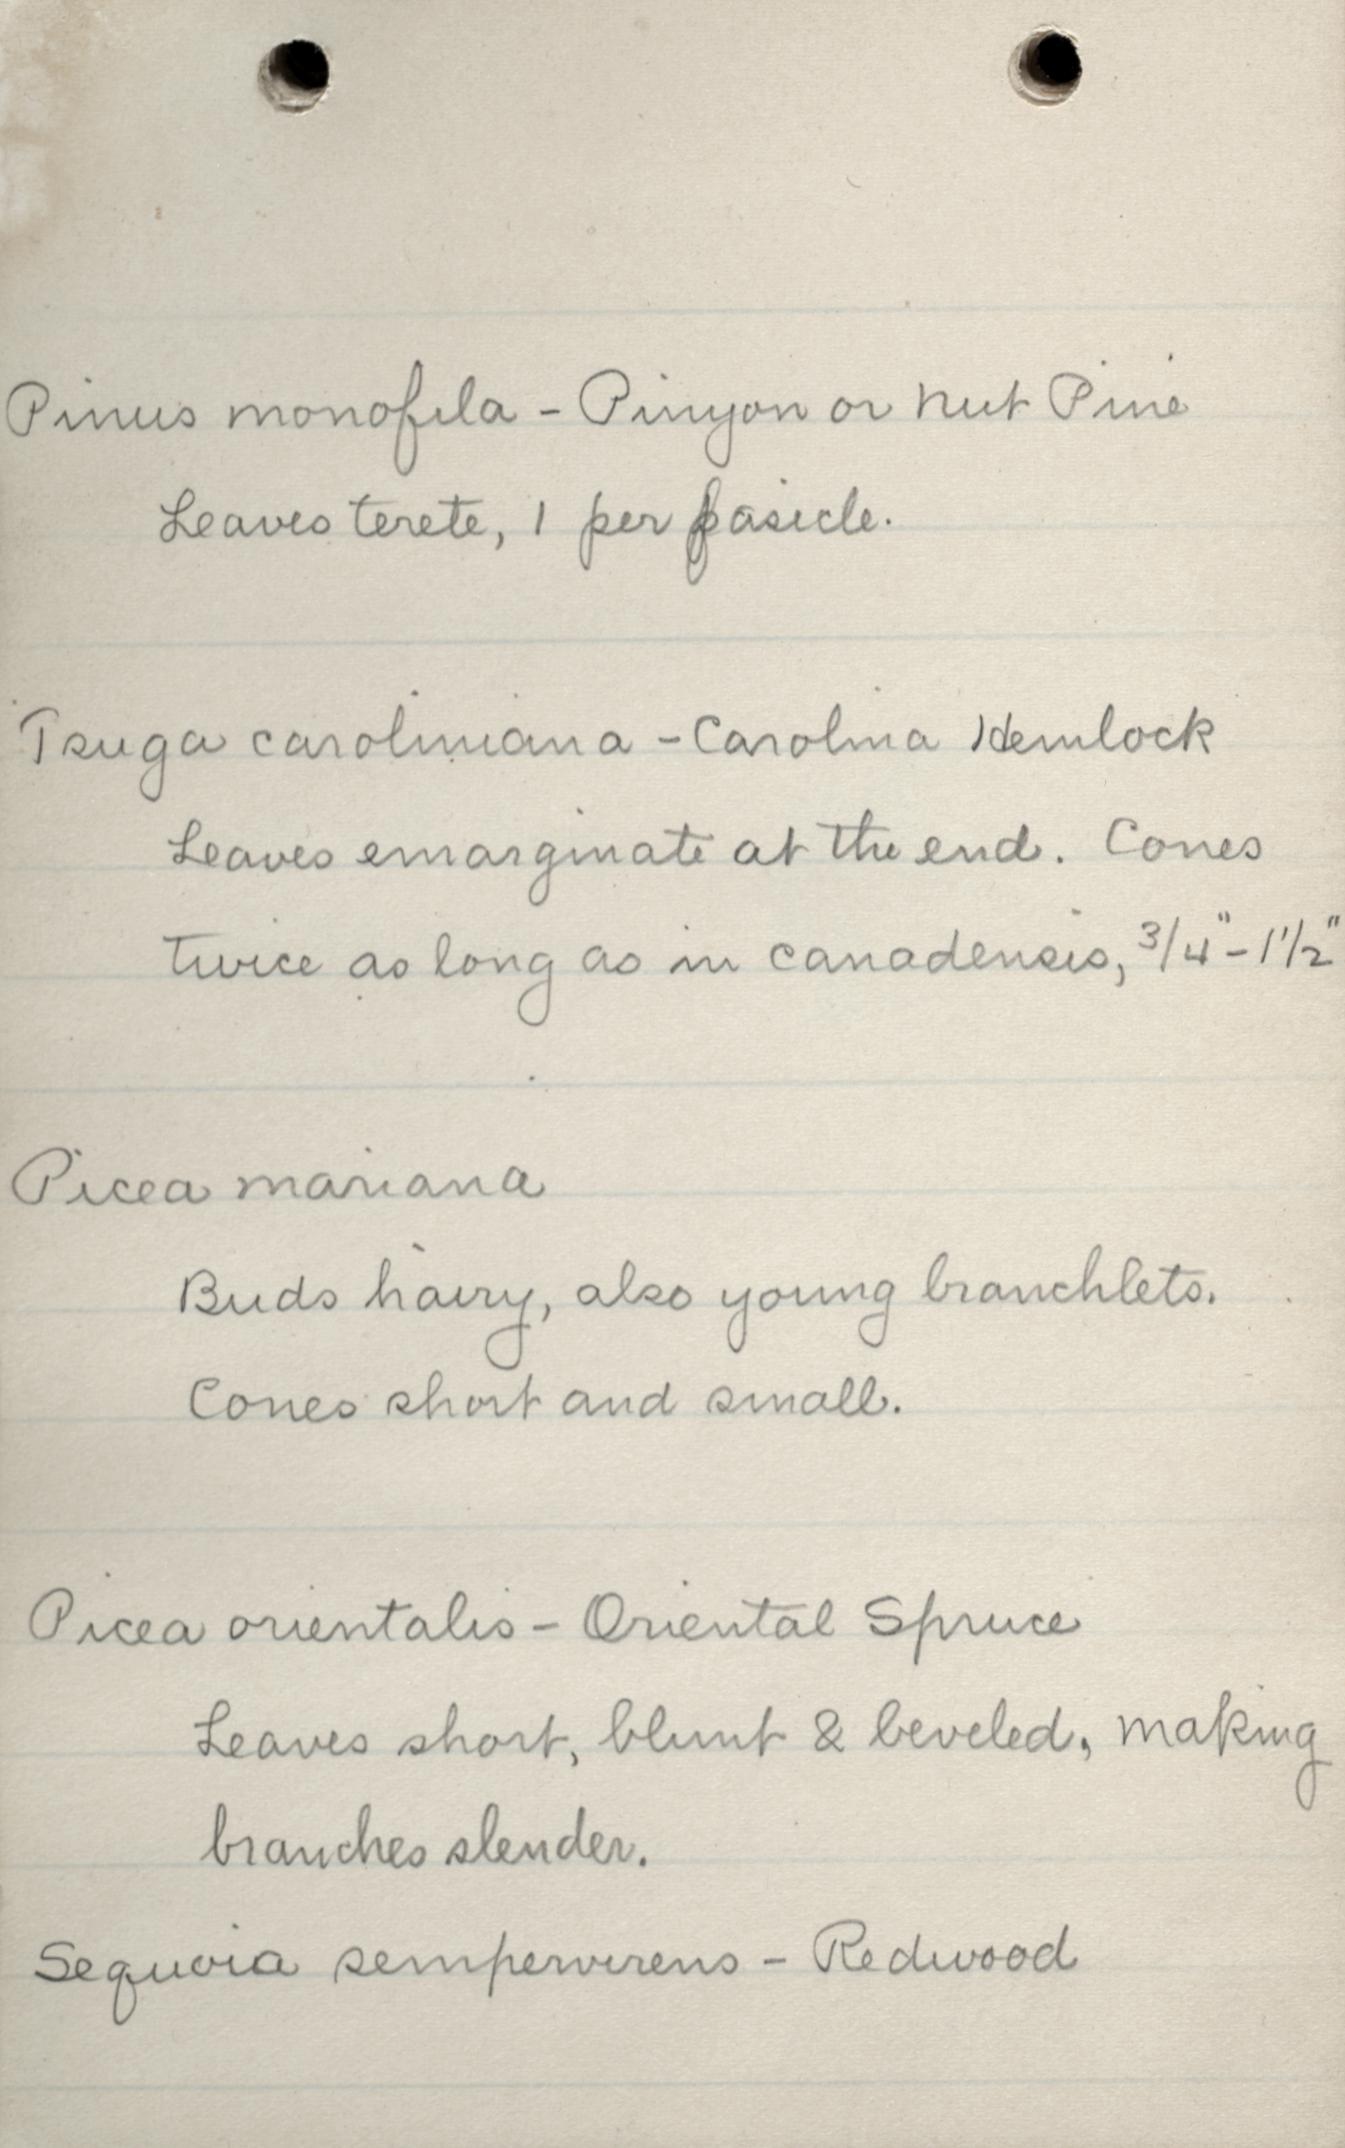 Pinus monofila - Pinyon or nut Pine
Leaves terete, 1 per fasicle.
Tsuga caroliniana - Carolina Hemlock
Leaves emarginate at the end. Cones
twice as long as in canadensis, 3/4" - 1 1/2"
Picea mariana
Buds hairy, also young branchlets.
Cones short and small.
Picea orientalis - Oriental Spruce
Leaves short, blunt & beveled, making
branches slender.
Sequoia sempervirens - Redwood